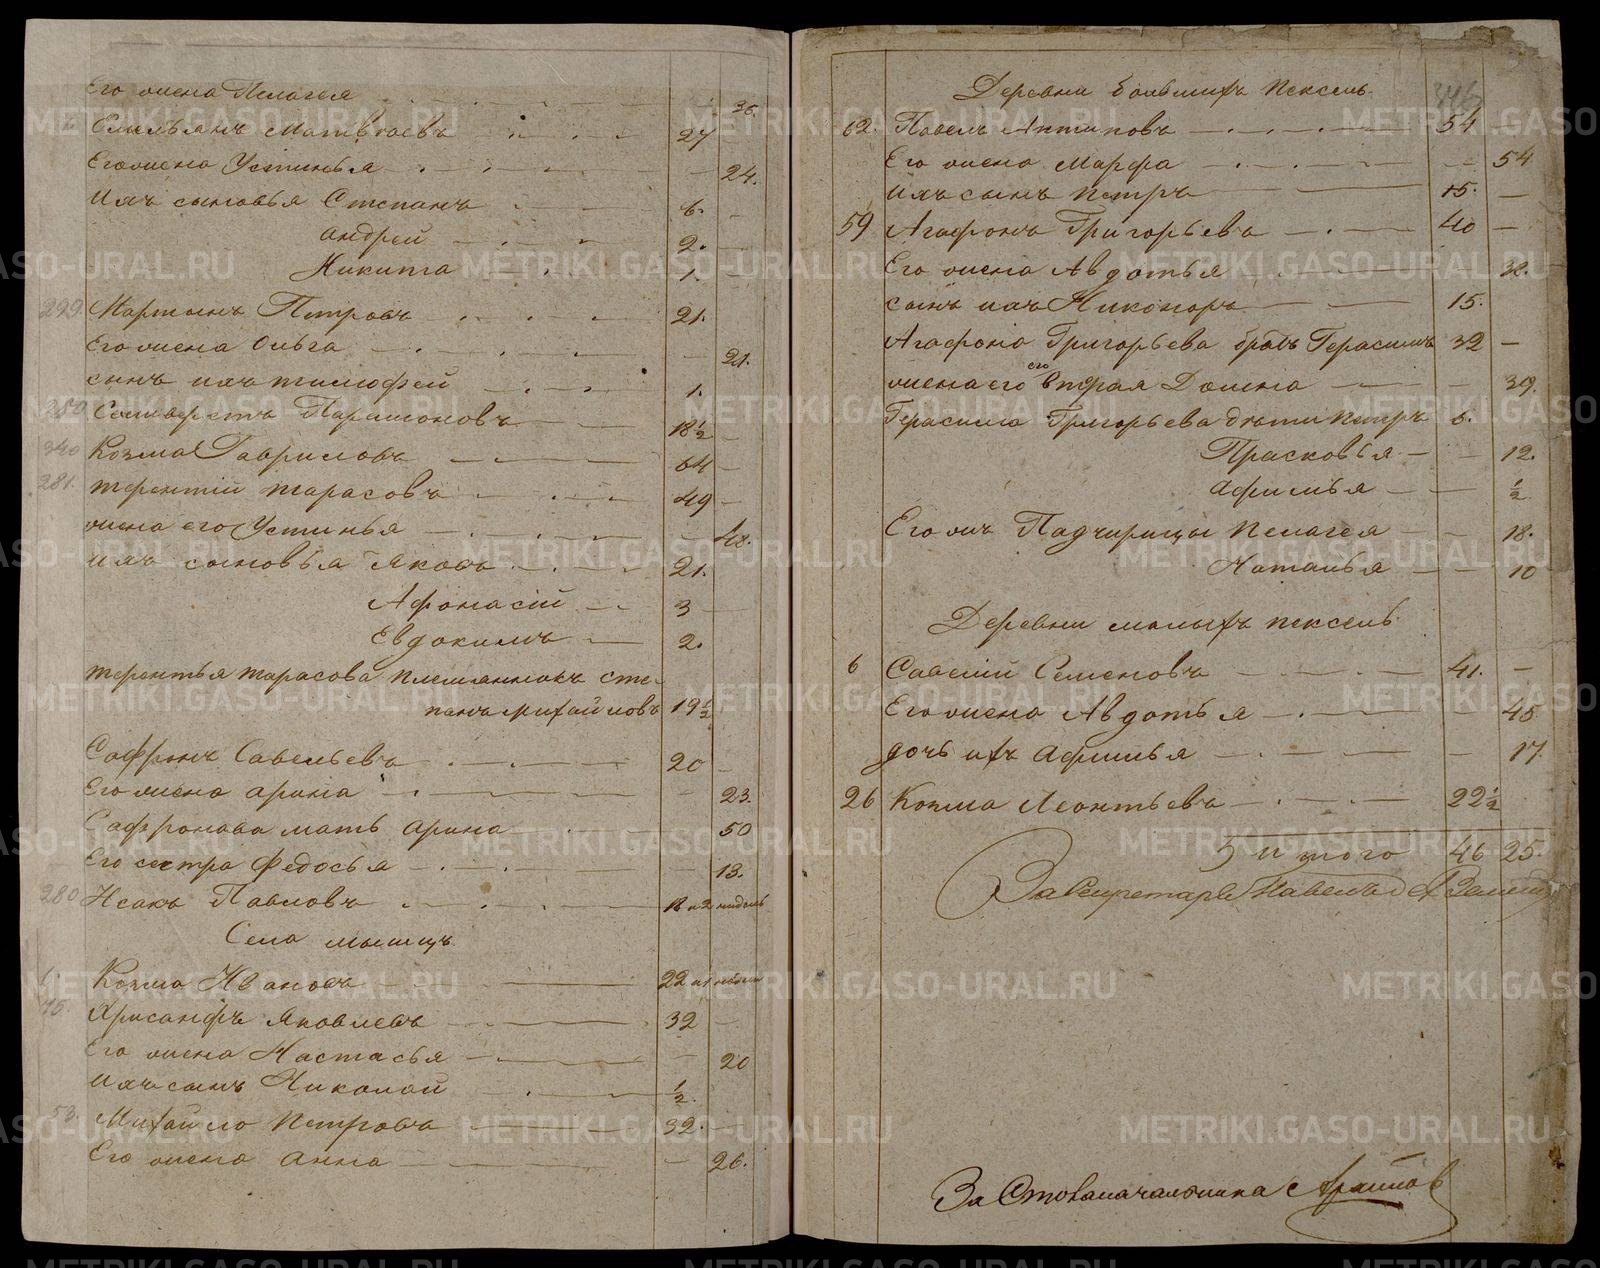 Его жена Пелагея 36.
Емельянъ Матвѣевъ 27
Его жена Устинья 24.
Ихъ сыновья Степанъ 6.
Андрей 2.
Никита 1.
299. Мартынъ Петровъ 21.
Его жена Ольга 21.
сынъ ихъ Тимофей 1.
250 Селиверстъ Парамоновъ 18 1/2
340 Козма Гавриловъ 64
281. Терентий Тарасовъ 49
жена его Устинья 48.
Ихъ сыновья Яковъ 21.
Афонасiй 3
Евдокимъ 2.
Терентья Тарасова племянникъ Сте-
панъ Михайловъ 19 1/2
Сафронъ Савельевъ 20
Его жена Арина 23.
Сафронова мать Арина 50
Его сестра Федосья 13.
280 Исакъ Павловъ и 2 недель
Села
Козма Ивановъ 22
75. Хрисанфъ Яковлевъ 32
Его жена Настасья 20
Ихъ сынъ Николай 1/2.
53. Михайло Петровъ 32.
Его жена Анна 26.
Деревни большихъ Пексель
62. Павелъ Антиповъ 54
Его жена Марфа 54
Ихъ сынъ Петръ 15.
59 Агафонъ Григорьевъ 40
Его жена Авдотья 38.
сынъ ихъ Никоноръ 15.
Агафона Григорьева братъ Герасимъ 32
его
жена его вторая Домна 39.
Герасима Григорьева дѣти Петръ 6.
Прасковья 12.
Афимья 1/2
Его жъ Падчирицы Пелагея 18.
Наталья 10
Деревни малыхъ пексель
6 Савелiй Семеновъ 41.
Его жена Авдотья 45
дочь ихъ Афимья 17.
26 Козма Леонтьевъ 22 1/2
итого 46 25.
За Секретаря Павелъ
За Столоначальника
METRIKI.GASO-URAL.RU